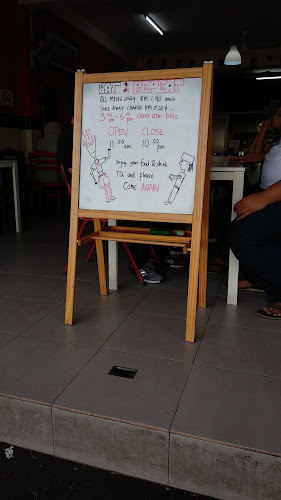 EAT & REPEAT
ALL MENU ONLY RM 1.90 each
TAKE AWAY CHARGE RM 0.20
3:00 pm - 6:00 pm
OPEN CLOSE
11:00 am 10:00 pm
enjoy your food & drink
TQ and please
COME AGAIN